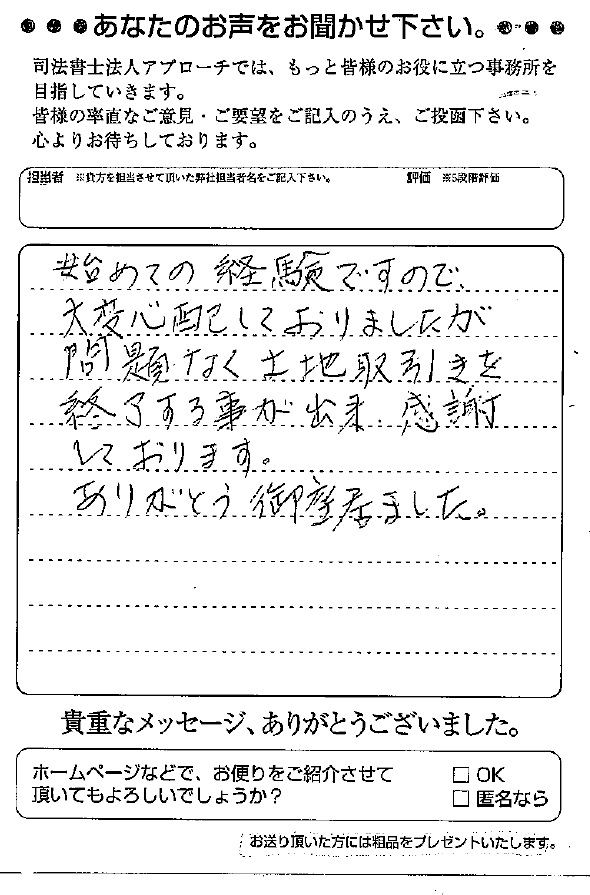 ●●●●あなたのお声をお聞かせ下さい。●●●●
司法書士法人アプローチでは、もっと皆様のお役に立つ事務所を
目指していきます。
皆様の率直なご意見・ご要望をご記入のうえ、ご投函下さい。
心よりお待ちしております。
担当者 ※貴方を担当させて頂いた弊社担当者名をご記入下さい。 評価 ※5段階評価
始めての経験ですので、
大変心配しておりましたが
問題なく土地取引きを
終了する事が出来、感謝
しております。
ありがとう御座居ました。
貴重なメッセージ、ありがとうございました。
ホームページなどで、お便りをご紹介させて
頂いてもよろしいでしょうか?
□ OK
□ 匿名なら
お送り頂いた方には粗品をプレゼントいたします。